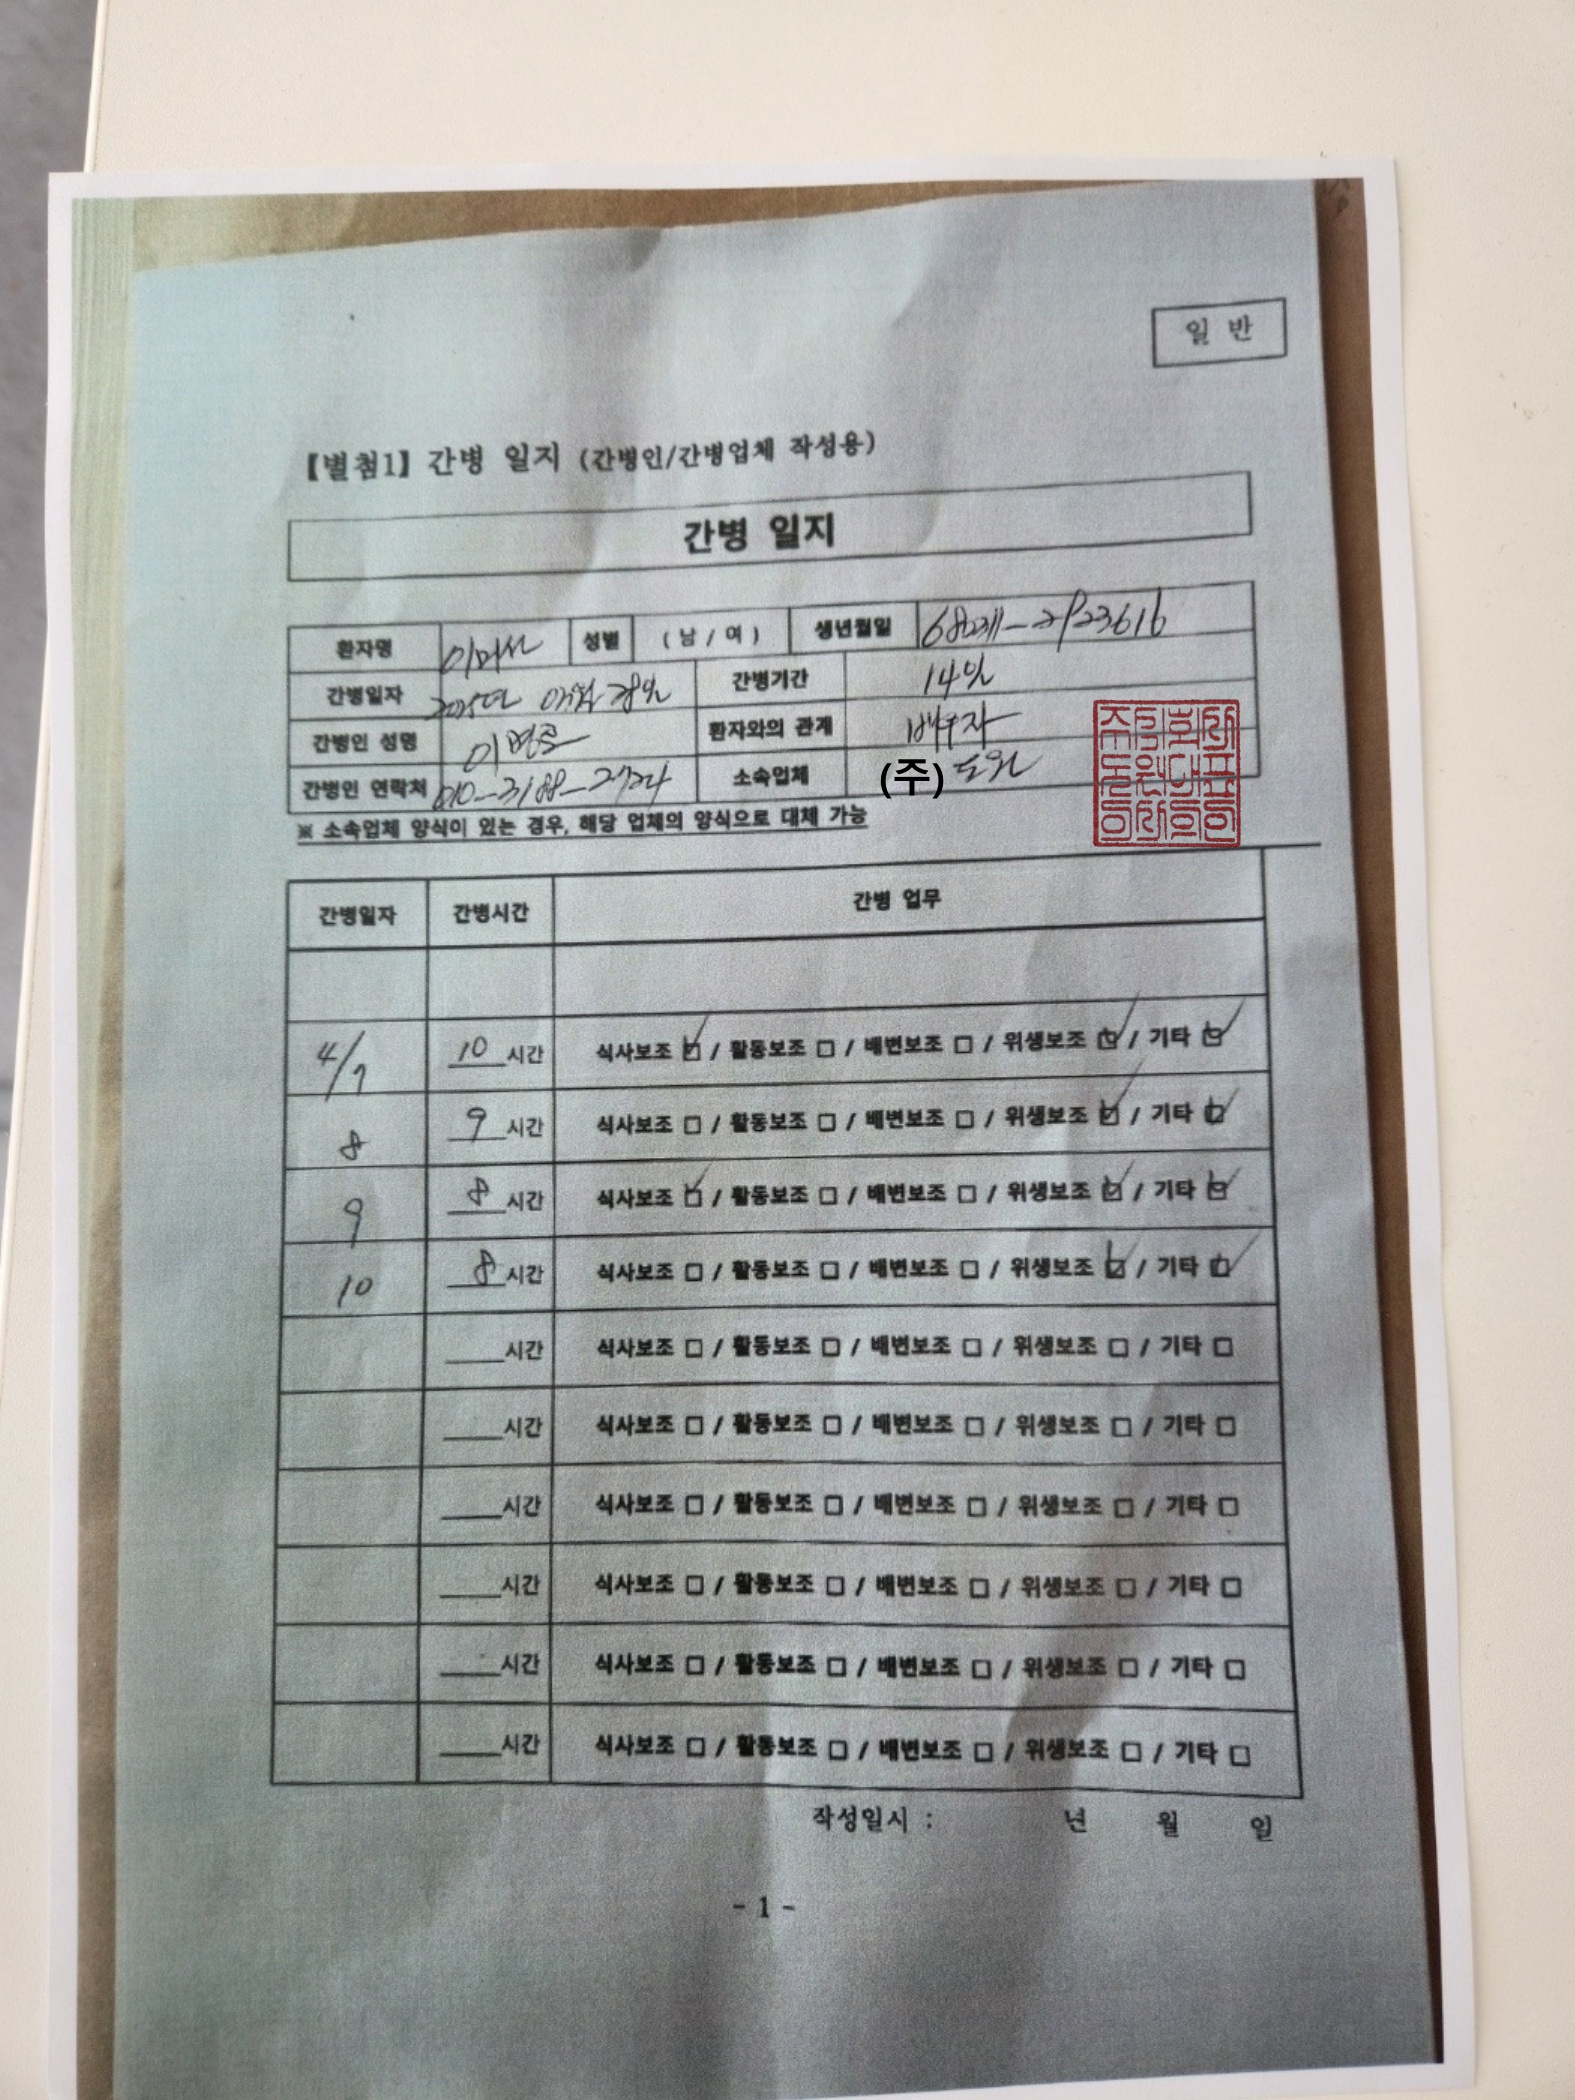 일 반
【별첨1】 간병 일지 (간병인/간병업체 작성용)
간병 일지
환자명 성별 ( 남 / 여 ) 생년월일
간병일자 간병기간 14일
간병인 성명 환자와의 관계 배우자
간병인 연락처 소속업체 (주) 도원
※ 소속업체 양식이 있는 경우, 해당 업체의 양식으로 대체 가능
간병일자 간병시간 간병 업무
4/7 10 시간 식사보조 ☑ / 활동보조 □ / 배변보조 □ / 위생보조 ☑ / 기타 ☑
8 9 시간 식사보조 □ / 활동보조 □ / 배변보조 □ / 위생보조 ☑ / 기타 ☑
9 8 시간 식사보조 ☑ / 활동보조 □ / 배변보조 □ / 위생보조 ☑ / 기타 ☑
10 8 시간 식사보조 □ / 활동보조 □ / 배변보조 □ / 위생보조 ☑ / 기타 ☑
____시간 식사보조 □ / 활동보조 □ / 배변보조 □ / 위생보조 □ / 기타 □
____시간 식사보조 □ / 활동보조 □ / 배변보조 □ / 위생보조 □ / 기타 □
____시간 식사보조 □ / 활동보조 □ / 배변보조 □ / 위생보조 □ / 기타 □
____시간 식사보조 □ / 활동보조 □ / 배변보조 □ / 위생보조 □ / 기타 □
____시간 식사보조 □ / 활동보조 □ / 배변보조 □ / 위생보조 □ / 기타 □
____시간 식사보조 □ / 활동보조 □ / 배변보조 □ / 위생보조 □ / 기타 □
작성일시 : 년 월 일
- 1 -